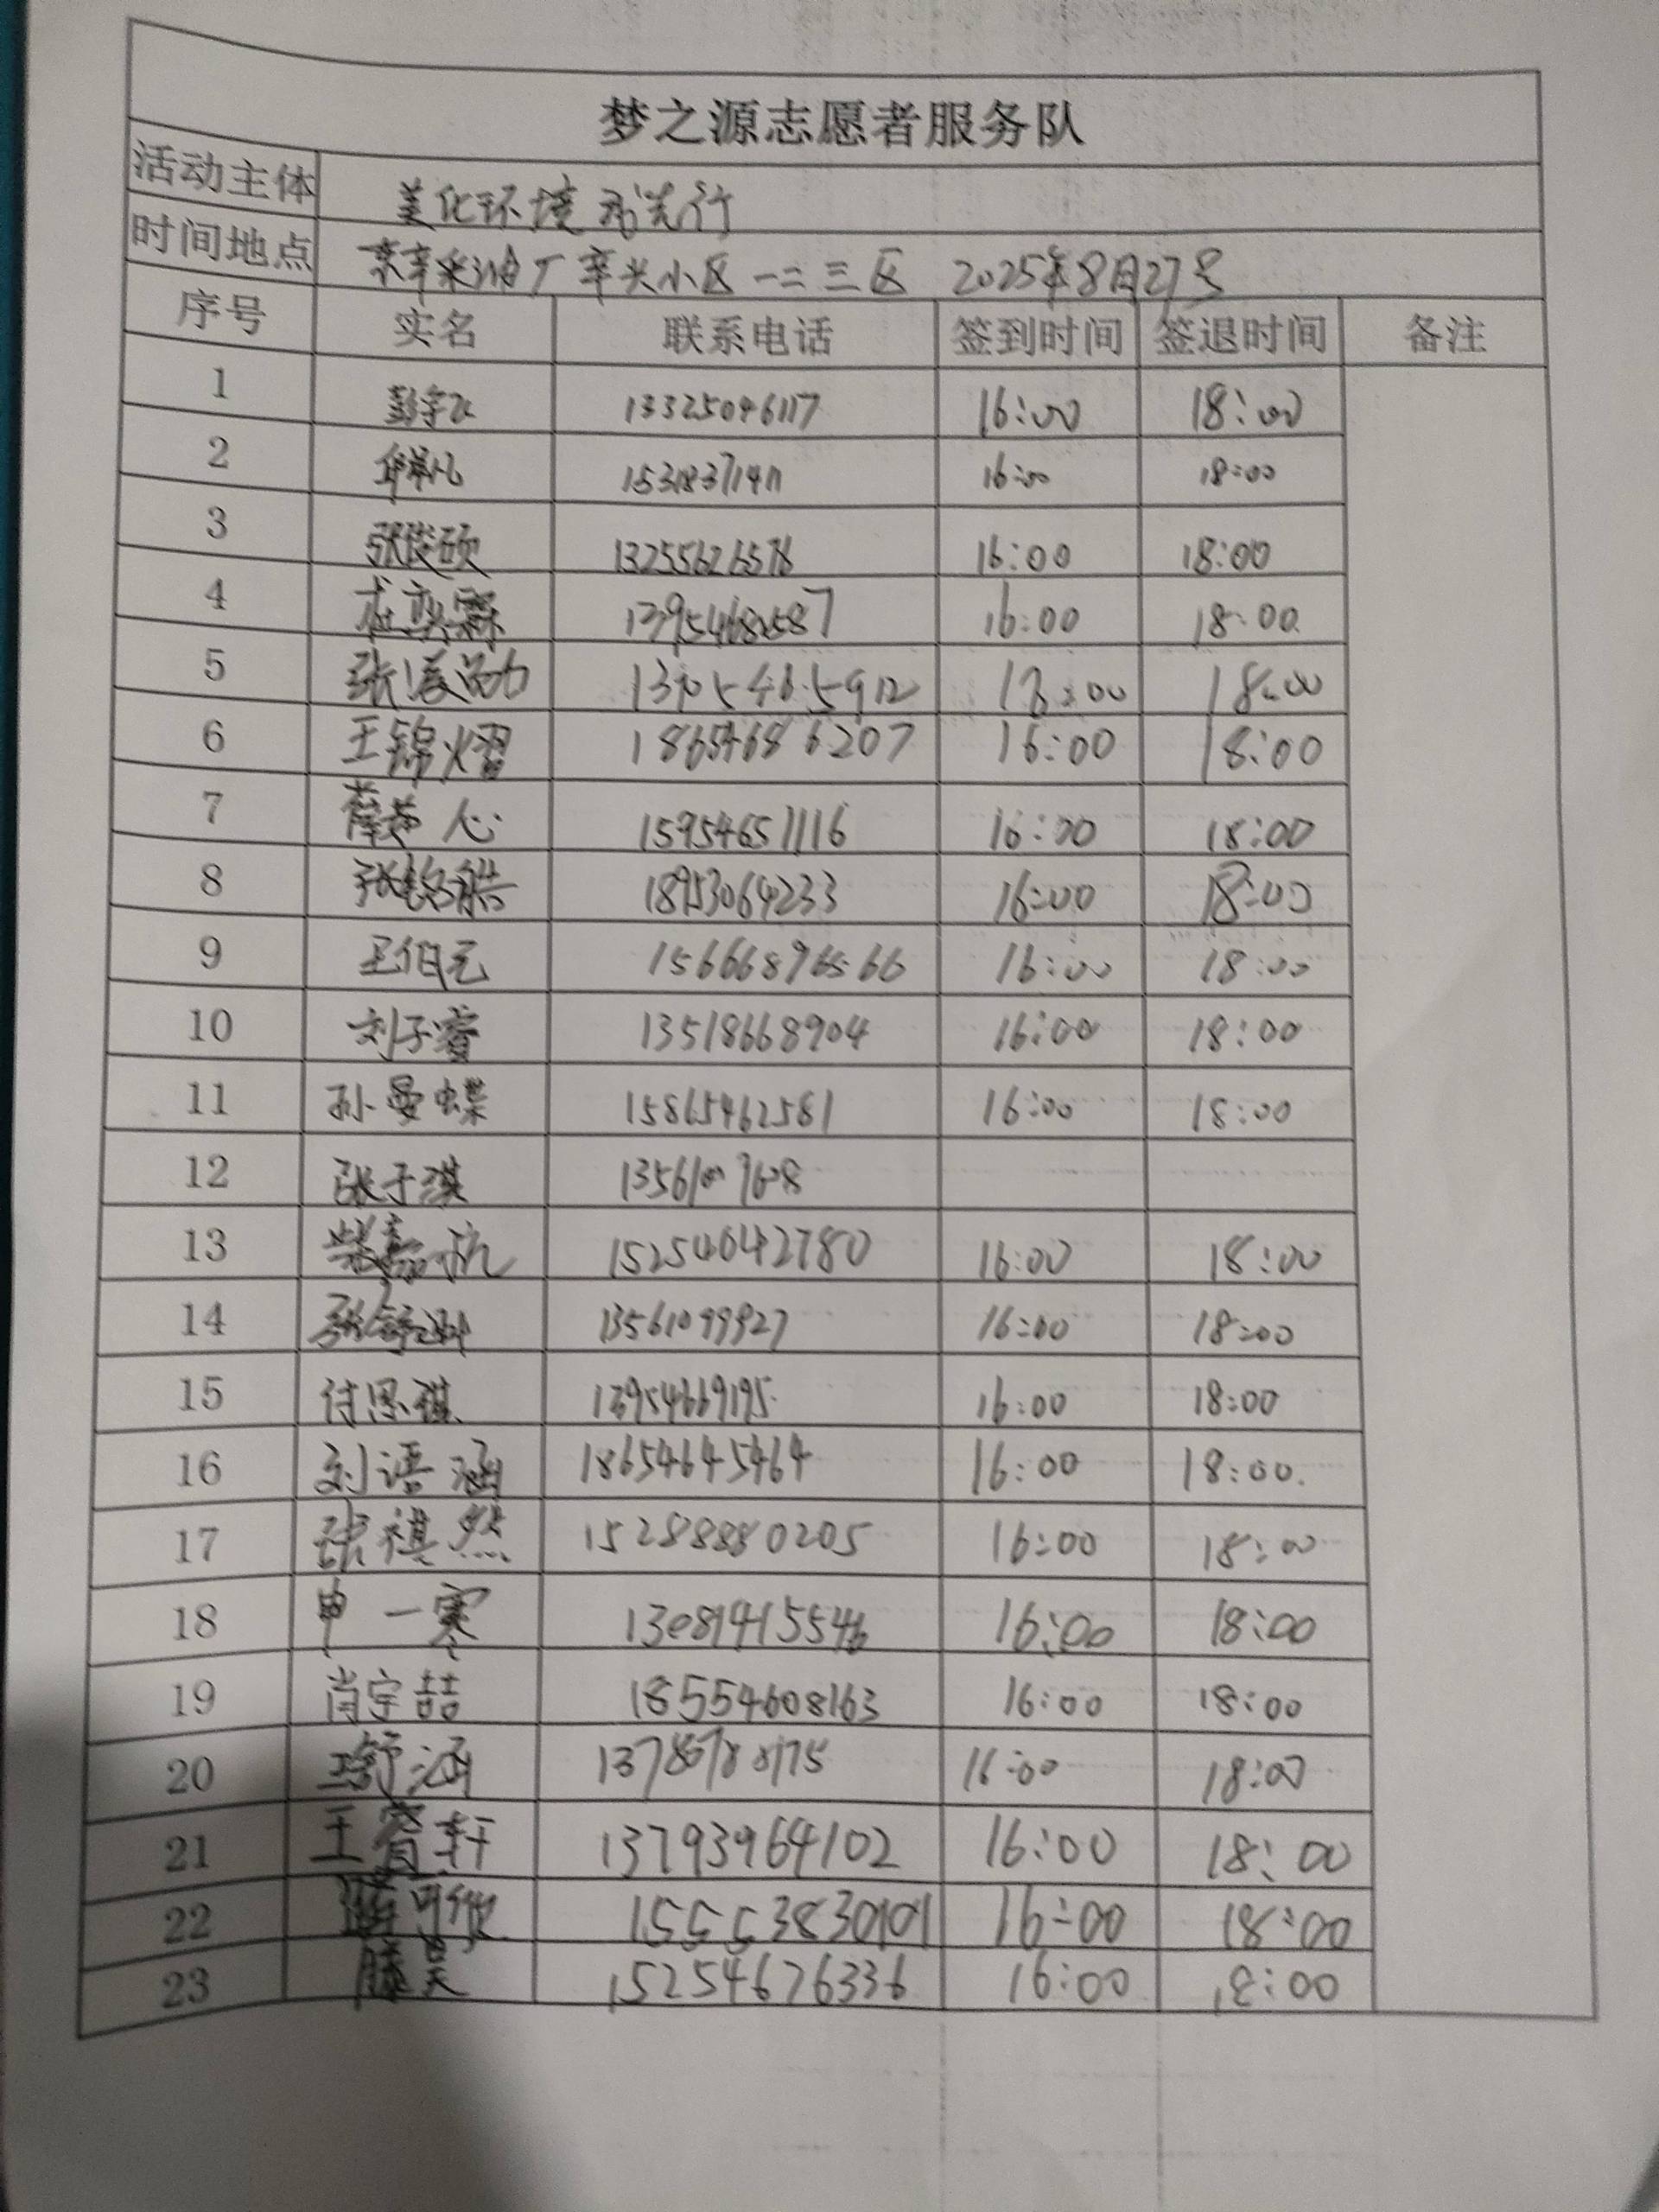 梦之源志愿者服务队
活动主体 美化环境 我先行
时间地点 东辛采油厂辛兴小区一二三区 2025年8月27号
序号 实名 联系电话 签到时间 签退时间 备注
1 16:00 18:00
2 16:00 18:00
3 张俊硕 13255626576 16:00 18:00
4 16:00 18:00
5 18:00
6 王锦熠 18654686207 16:00 18:00
7 薛梦心 15954651116 16:00 18:00
8 张铭皓 18953064233 16:00 18:00
9 王伯元 16:00 18:00
10 刘子睿 13518668904 16:00 18:00
11 孙曼蝶 15865462581 16:00 18:00
12 张子淇
13 柴嘉航 15254642780 16:00 18:00
14 13561099827 16:00 18:00
15 付思琪 13954669195 16:00 18:00
16 刘语涵 18654645464 16:00 18:00
17 张祺然 15288880205 16:00 18:00
18 申一骞 16:00 18:00
19 肖宇喆 18554608163 16:00 18:00
20 王舒涵 16:00 18:00
21 王睿轩 13793964102 16:00 18:00
22 16:00 18:00
23 滕昊 15254676336 16:00 18:00